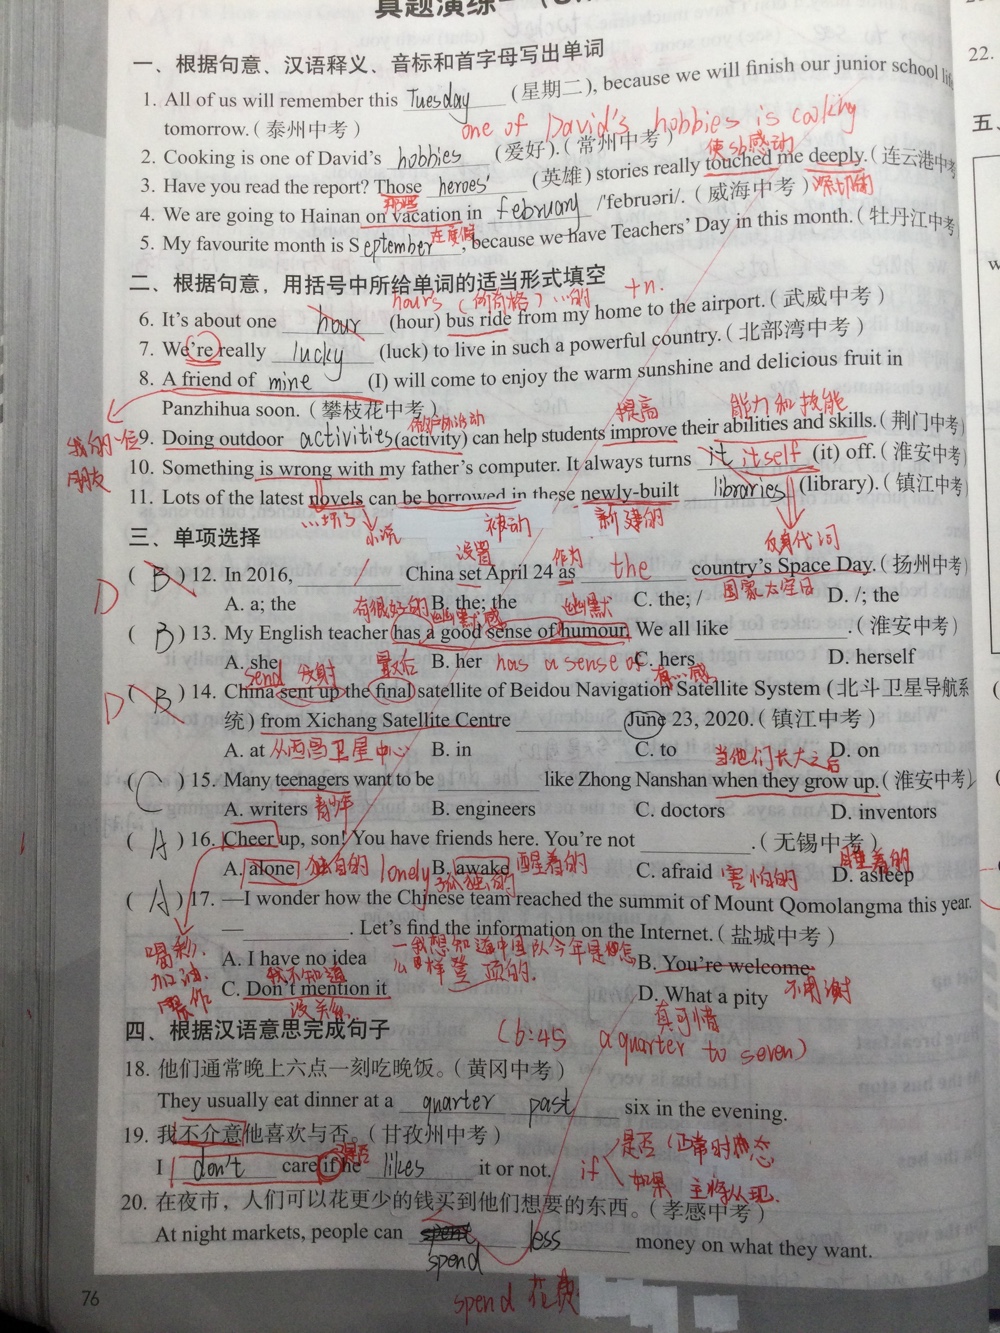 真题演练一
一、根据句意、汉语释义、音标和首字母写出单词
1. All of us will remember this Tuesday (星期二), because we will finish our junior school
tomorrow.(泰州中考)
one of David's hobbies is cooking
2. Cooking is one of David's hobbies (爱好).(常州中考)
使sb感动
3. Have you read the report? Those heroes' (英雄) stories really touched me deeply.(连云港中考
那些
深切的
4. We are going to Hainan on vacation in february /'februəri/.(威海中考)
在度假
5. My favourite month is September, because we have Teachers' Day in this month.(牡丹江中考
二、根据句意，用括号中所给单词的适当形式填空
hour's (所有格) …的 +n.
6. It's about one hour (hour) bus ride from my home to the airport.(武威中考)
7. We're really lucky (luck) to live in such a powerful country.(北部湾中考)
8. A friend of mine (I) will come to enjoy the warm sunshine and delicious fruit in
Panzhihua soon.(攀枝花中考)
我的一位
朋友
做户外活动
提高
能力和技能
9. Doing outdoor activities (activity) can help students improve their abilities and skills.(荆门中考)
10. Something is wrong with my father's computer. It always turns it itself (it) off.(淮安中考)
11. Lots of the latest novels can be borrowed in these newly-built libraries (library).(镇江中考)
小说
被动
新建的
反身代词
三、单项选择
设置
作为
D
( B ) 12. In 2016, / China set April 24 as the country's Space Day.(扬州中考)
国家太空日
A. a; the B. the; the C. the; / D. /; the
有很好的幽默感
幽默
( B ) 13. My English teacher has a good sense of humour. We all like .(淮安中考)
A. she B. her C. hers D. herself
has a sense of
有…感
send 发射
最后
D
( B ) 14. China sent up the final satellite of Beidou Navigation Satellite System (北斗卫星导航系
统) from Xichang Satellite Centre June 23, 2020.(镇江中考)
A. at B. in C. to D. on
从西昌卫星中心
当他们长大之后
( C ) 15. Many teenagers want to be like Zhong Nanshan when they grow up.(淮安中考)
A. writers B. engineers C. doctors D. inventors
青少年
( A ) 16. Cheer up, son! You have friends here. You're not .(无锡中考)
A. alone 独自的 lonely 孤独的 B. awake 醒着的 C. afraid 害怕的 D. asleep 睡着的
( A ) 17. —I wonder how the Chinese team reached the summit of Mount Qomolangma this year.
— . Let's find the information on the Internet.(盐城中考)
一我想知道中国队今年是怎
么样登顶的.
喝彩.
加油.
振作
A. I have no idea B. You're welcome
我不知道
不用谢
C. Don't mention it D. What a pity
没关系.
真可惜
四、根据汉语意思完成句子
(6:45 a quarter to seven)
18. 他们通常晚上六点一刻吃晚饭。(黄冈中考)
They usually eat dinner at a quarter past six in the evening.
19. 我不介意他喜欢与否。(甘孜州中考)
是否
I don't care if he likes it or not.
if 是否 (正常时态
如果 主将从现.
20. 在夜市，人们可以花更少的钱买到他们想要的东西。(孝感中考)
At night markets, people can spend less money on what they want.
spend 花费
76
22.
五